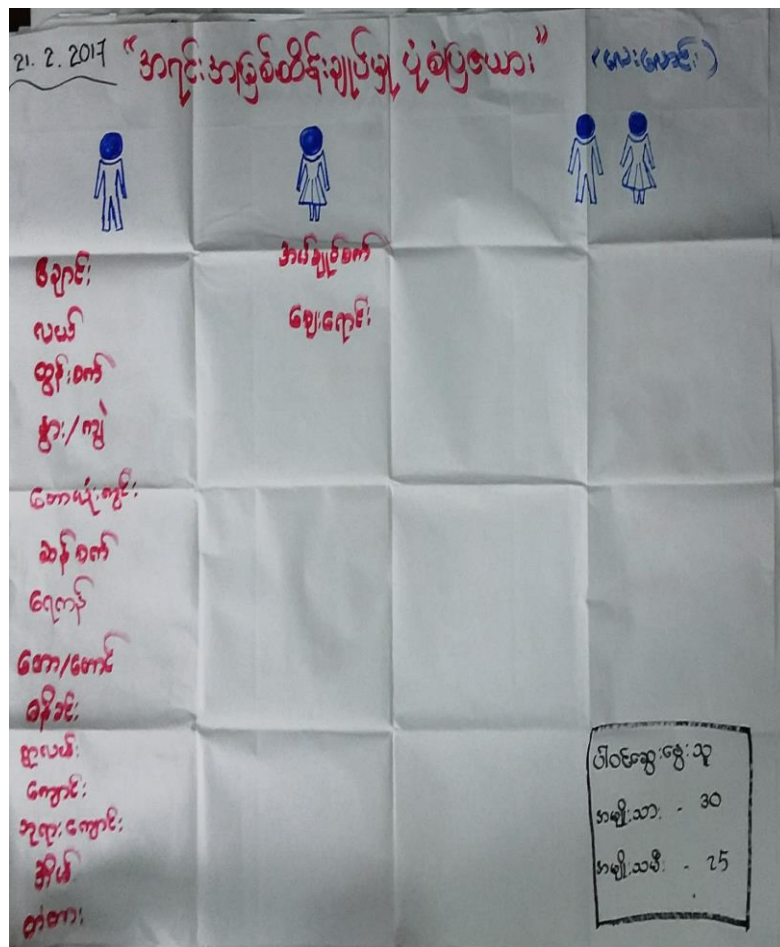 21. 2. 2017 "အရင်းအမြစ်ထိန်းချုပ်မှု ပုံစံပြဇယား" (လေးလောင်း)
ချောင်း
လယ်
ထွန်စက်
နွား/ကျွဲ
ဘောလုံးကွင်း
ဆန်စက်
ရေကန်
တော/တောင်
ဓနိခင်း
ရွာလယ်
ကျောင်း
ဘုရားကျောင်း
အိမ်
တံတား
အပ်ချုပ်စက်
စျေးရောင်း
ပါဝင်ဆွေးနွေးသူ
အမျိုးသား - 30
အမျိုးသမီး - 25